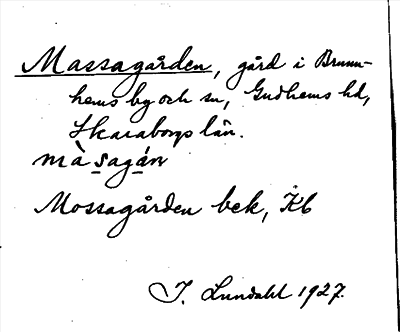 Massagården, gård i Brunn-
hems by och sn, Gudhems hd,
Skaraborgs län.
màsagán
Mossagården bek, Kb
I. Lundahl 1927.